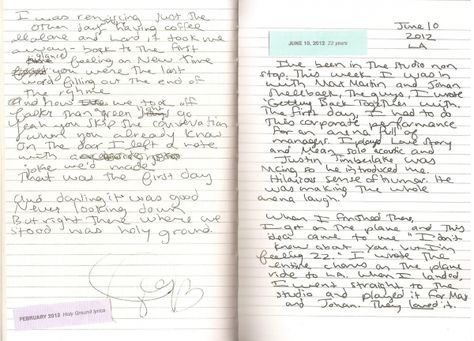 I was reminiscing just the
other day having coffee
all alone and Lord it took me
away - back to the first
glance feeling on New York Time
you were the last
word filling out the end of
the rhyme
And how we took off
faster than "green light, go"
yeah you skip the conversation
when you already know
On the door I left a note
with a joke
joke we'd made
That was the first day
And darling, it was good
Never looking down
But right there where we
stood was holy ground.
FEBRUARY 2012 Holy Ground lyrics
JUNE 10, 2012 22 years
June 10
2012
LA
I've been in the studio non
stop. This week I was in
with Max Martin and Johan
Shellback, the guys I wrote
"Getting Back Together" with.
The first day, I had to do
this corporate performance
for an arena full of
managers. I played Love Story
and Mean, solo acoustic and
Justin Timberlake was
MCing so he introduced me.
Hilarious sense of humor. He
was making the whole
arena laugh.
When I finished there,
I got on the plane and this
idea came to me "I don't
know about you, but I'm
feeling 22." I wrote the
entire chorus on the plane
ride to LA. When I landed,
I went straight to the
studio and played it for Max
and Johan. They loved it.